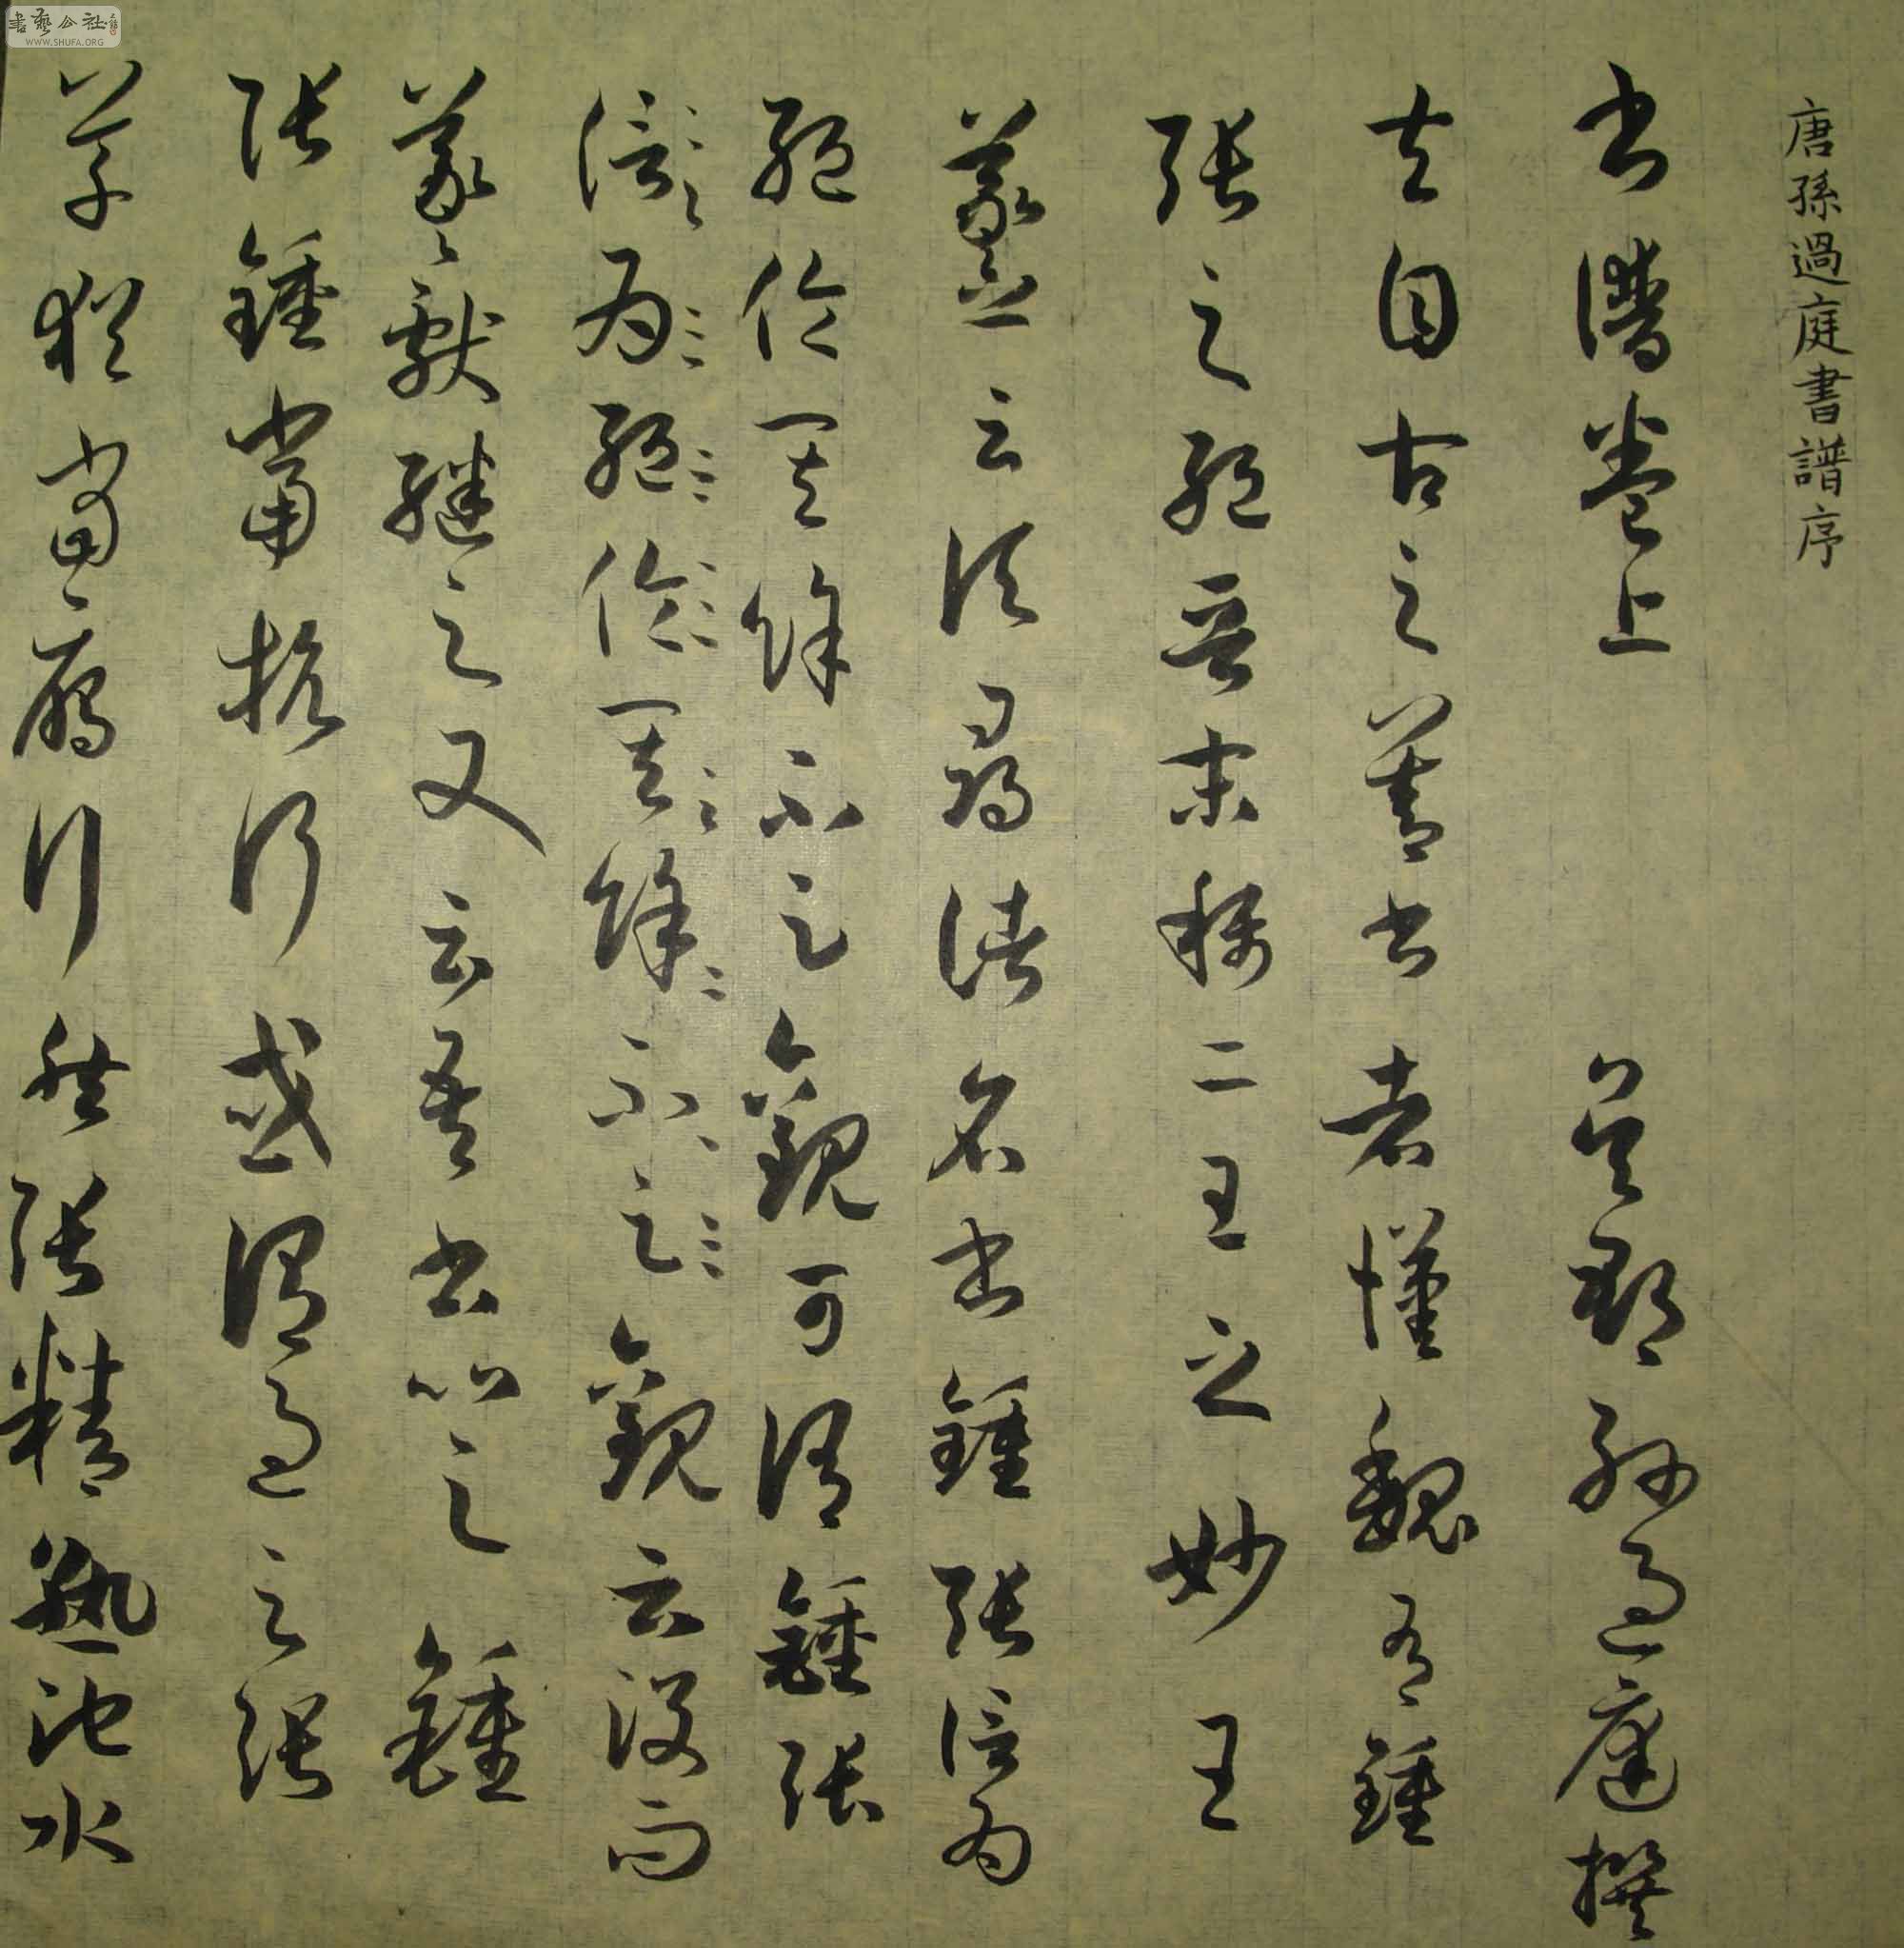 唐孫過庭書譜序
書譜卷上 吳郡孫過庭撰
夫自古之善書者漢魏有鍾
張之絕晉末稱二王之妙王
羲之云頃尋諸名書鍾張信為
絕倫其餘不足觀可謂鍾張
信為絕倫其餘不足觀云沒而
羲獻繼之又云吾書比之鍾
張鍾當抗行或謂過之張
草猶當鴈行然張精熟池水
書藝公社
WWW.SHUFA.ORG